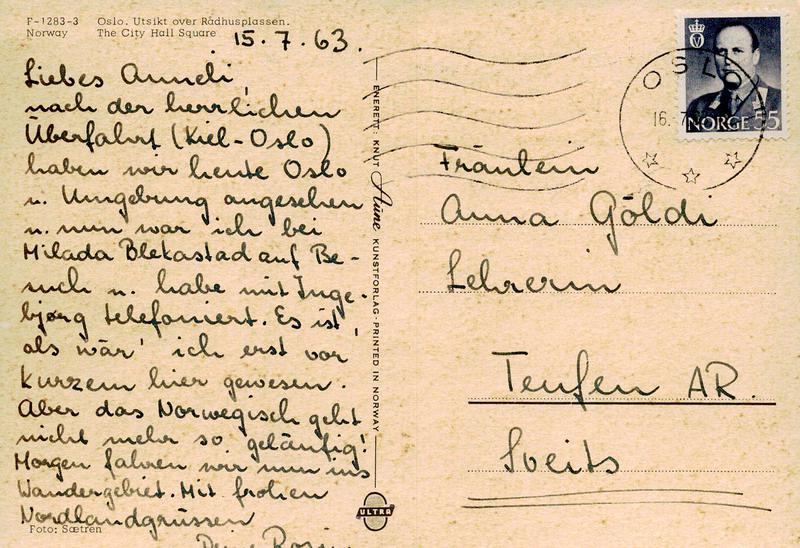 F-1283-3 Oslo. Utsikt over Rådhusplassen.
Norway The City Hall Square
15.7.63.
Liebes Anneli,
nach der herrlichen
Überfahrt (Kiel-Oslo)
haben wir heute Oslo
u. Umgebung angesehen
u. nun war ich bei
Milada Blekastad auf Be-
such u. habe mit Inge-
björg telefoniert. Es ist,
als wär' ich erst vor
kurzem hier gewesen.
Aber das Norwegisch geht
nicht mehr so geläufig!
Morgen fahren wir nun ins
Wandergebiet. Mit frohen
Nordlandgrüssen
Deine
Foto: Sætren
ENERETT: KNUT Aune KUNSTFORLAG - PRINTED IN NORWAY
ULTRA
OSLO
16.7
NORGE 55
Fräulein
Anna Göldi
Lehrerin
Teufen AR.
Sveits